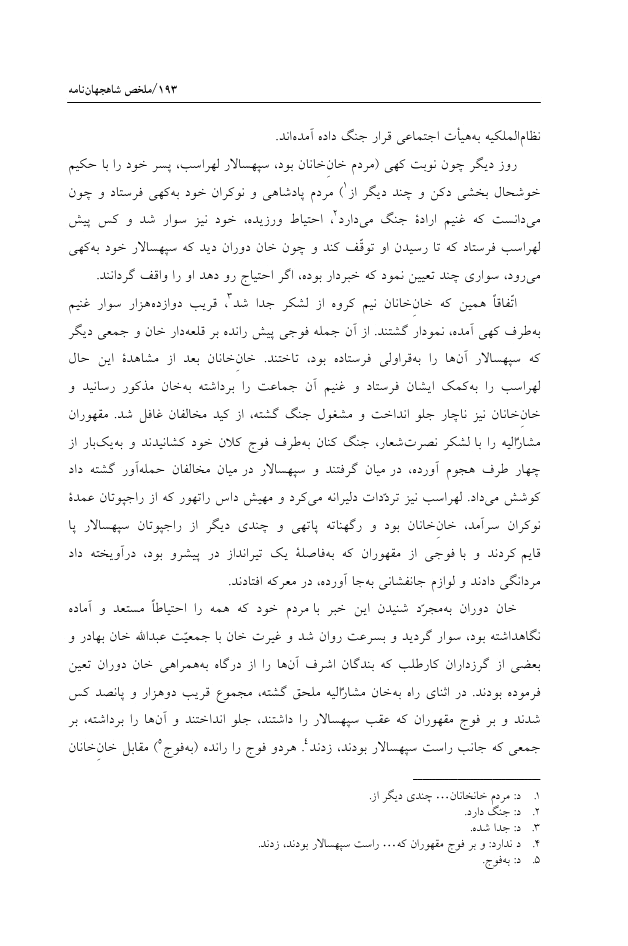 ۱۹۳/ملخص شاهجهان‌نامه
نظام‌الملکیه به‌هیأت اجتماعی قرار جنگ داده آمده‌اند.
روز دیگر چون نوبت کهی (مردم خانِ‌خانان بود، سپهسالار لهراسب، پسر خود را با حکیم
خوشحال بخشی دکن و چند دیگر از۱) مردم پادشاهی و نوکران خود به‌کهی فرستاد و چون
می‌دانست که غنیم ارادهٔ جنگ می‌دارد۲، احتیاط ورزیده، خود نیز سوار شد و کس پیش
لهراسب فرستاد که تا رسیدن او توقّف کند و چون خان دوران دید که سپهسالار خود به‌کهی
می‌رود، سواری چند تعیین نمود که خبردار بوده، اگر احتیاج رو دهد او را واقف گردانند.
اتّفاقاً همین که خانِ‌خانان نیم کروه از لشکر جدا شد۳، قریب دوازده‌هزار سوار غنیم
به‌طرف کهی آمده، نمودار گشتند. از آن جمله فوجی پیش رانده بر قلعه‌دار خان و جمعی دیگر
که سپهسالار آن‌ها را به‌قراولی فرستاده بود، تاختند. خانِ‌خانان بعد از مشاهدهٔ این حال
لهراسب را به‌کمک ایشان فرستاد و غنیم آن جماعت را برداشته به‌خان مذکور رسانید و
خانِ‌خانان نیز ناچار جلو انداخت و مشغول جنگ گشته، از کید مخالفان غافل شد. مقهوران
مشارٌالیه را با لشکر نصرت‌شعار، جنگ کنان به‌طرف فوج کلان خود کشانیدند و به‌یک‌بار از
چهار طرف هجوم آورده، در میان گرفتند و سپهسالار در میان مخالفان حمله‌آور گشته داد
کوشش می‌داد. لهراسب نیز تردّدات دلیرانه می‌کرد و مهیش داس راتهور که از راجپوتان عمدهٔ
نوکران سرآمد، خانِ‌خانان بود و رگهناته پاتهی و چندی دیگر از راجپوتان سپهسالار پا
قایم کردند و با فوجی از مقهوران که به‌فاصلهٔ یک تیرانداز در پیشرو بود، درآویخته داد
مردانگی دادند و لوازم جانفشانی به‌جا آورده، در معرکه افتادند.
خان دوران به‌مجرّد شنیدن این خبر با مردم خود که همه را احتیاطاً مستعد و آماده
نگاهداشته بود، سوار گردید و بسرعت روان شد و غیرت خان با جمعیّت عبدالله خان بهادر و
بعضی از گرزداران کارطلب که بندگان اشرف آن‌ها را از درگاه به‌همراهی خان دوران تعین
فرموده بودند. در اثنای راه به‌خان مشارٌالیه ملحق گشته، مجموع قریب دوهزار و پانصد کس
شدند و بر فوج مقهوران که عقب سپهسالار را داشتند، جلو انداختند و آن‌ها را برداشته، بر
جمعی که جانب راست سپهسالار بودند، زدند۴. هردو فوج را رانده (به‌فوج۵) مقابل خانِ‌خانان
۱. د: مردم خانخانان... چندی دیگر از.
۲. د: جنگ دارد.
۳. د: جدا شده.
۴. د ندارد: و بر فوج مقهوران که... راست سپهسالار بودند، زدند.
۵. د: به‌فوج.